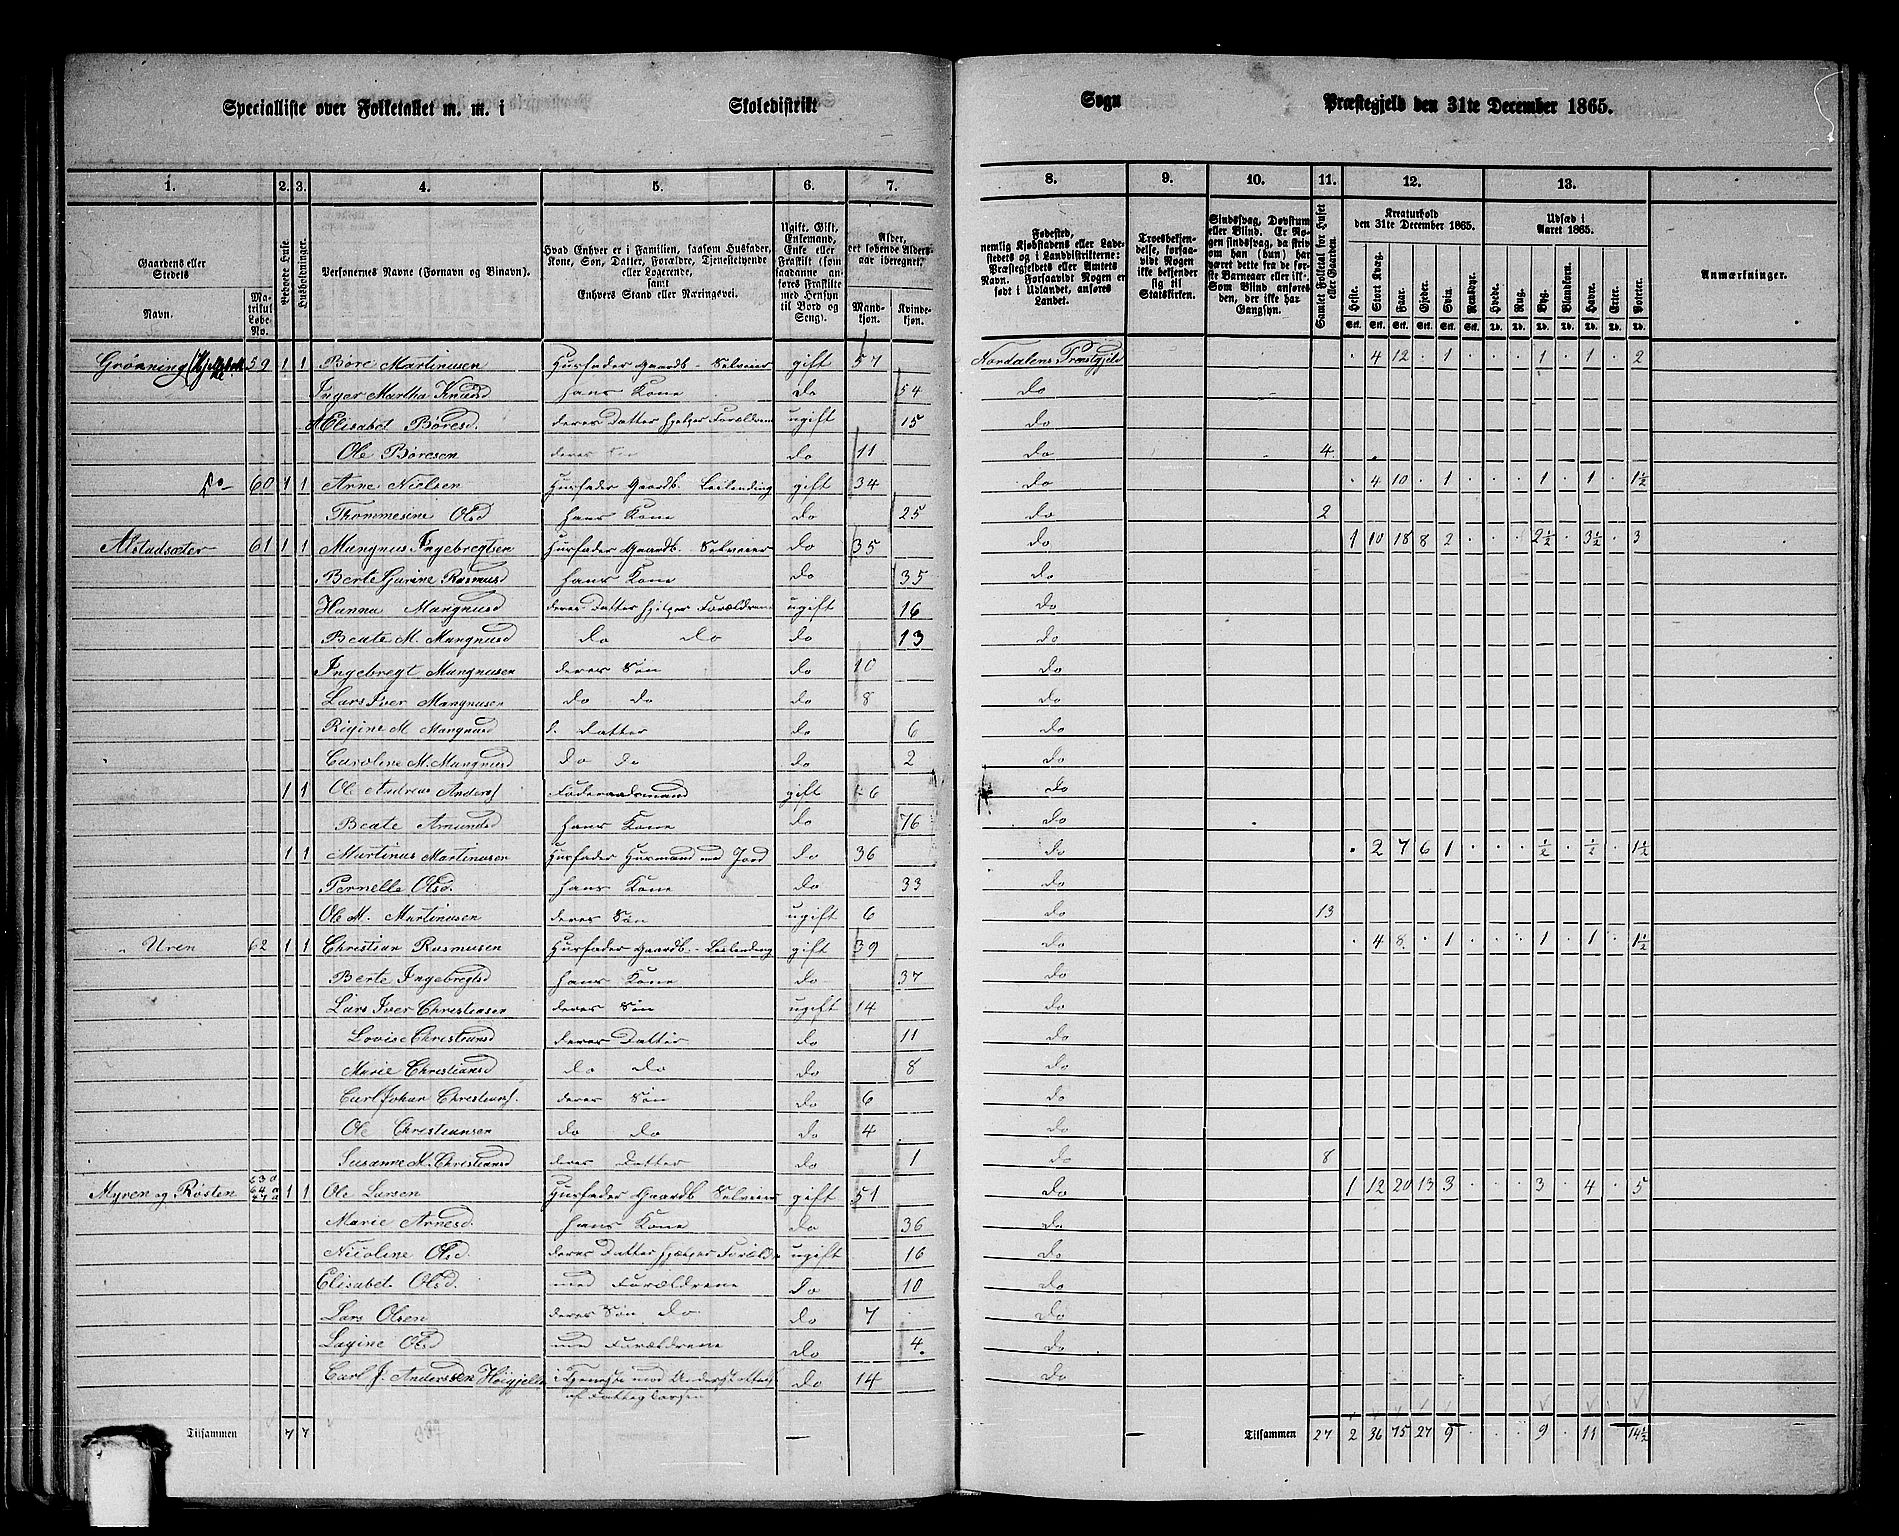 Specialliste over Folketallet m. m. i Skoledistrikt Sogn Præstegjeld den 31te December 1865.
1. 2. 3. 4. 5. 6. 7. 8. 9. 10. 11. 12. 13.
Gaardens eller Stedets Navn. Matrikul Løbe-No. Beboede Huse. Husholdninger. Personernes Navne (Fornavn og Binavn). Hvad Enhver er i Familien, saasom Husfader, Kone, Søn, Datter, Forældre, Tjenestetyende eller Logerende, samt Enhvers Stand eller Næringsvei. Ugift, Gift, Enkemand, Enke eller Fraskilt (som saadanne anføres Fraskilte med Hensyn til Bord og Seng). Alder, det løbende Aldersaar iberegnet. Mandkjøn. Kvindekjøn. Fødested, nemlig Kjøbstadens eller Ladestedets og i Landdistrikterne: Præstegjeldets eller Amtets Navn. Forsaavidt Nogen er født i Udlandet, anføres Landet. Troesbekjendelse, forsaavidt Nogen ikke bekjender sig til Statskirken. Sindssvag, Døvstum eller Blind. Er Nogen sindssvag, da skrives om han (hun) har været dette fra de første Barneaar eller ikke. Som Blind anføres den, der ikke har Gangsyn. Samlet Folketal for Huset eller Gaarden. Kreaturhold den 31te December 1865. Udsæd i Aaret 1865. Anmærkninger.
Heste. Stort Kvæg. Faar. Gjeder. Svin. Rensdyr. Hvede. Rug. Byg. Blandkorn. Havre. Erter. Poteter.
Stk. Stk. Stk. Stk. Stk. Stk. Td. Td. Td. Td. Td. Td. Td.
Grønning 59 1 1 Børe Martinusen Husfader Gaardb. Selveier gift 57 Nordalens Præstgjeld . 4 12 . 1 . . . 1 . 1 . 2
Inger Martha Knudsd hans Kone do 54 do
Elisabet Børesd. deres Datter hjelper Forældrene ugift 15 do
Ole Børesen deres Søn do 11 do 4
do 60 1 1 Arne Nielsen Husfader Gaardb. Leilending gift 34 do . 4 10 . 1 . . . 1 . 1 . 1½
Thommesine Olsd hans Kone do 25 do 2
Alstadsæter 61 1 1 Mangnus Ingebregtsen Husfader Gaardb. Selveier do 35 do 1 10 18 8 2 . . . 2½ . 3½ . 3
Berte Gurine Rasmusd hans Kone do 35 do
Hanna Mangnusd deres Datter hjelper Forældrene ugift 16 do
Beate M. Mangnusd do do do 13 do
Ingebregt Mangnusen deres Søn do 10 do
Lars Iver Mangnusen do do do 8 do
Rigine M. Mangnusd d. Datter do 6 do
Caroline M. Mangnusd do do do 2 do
1 1 Ole Andreas Anders. Føderaadsmand gift 6 do
Beate Amundsd hans Kone do 76 do
1 1 Martinus Martinusen Husfader Husmand med Jord do 36 do . 2 7 6 1 . . . ½ . ½ . 1½
Pernelle Olsd. hans Kone do 33 do
Ole M. Martinusen deres Søn ugift 6 do 13
Uren 62 1 1 Christian Rasmusen Husfader Gaardb. Leilending gift 39 do . 4 8 . 1 . . . 1 . 1 . 1½
Berte Ingebregtsd hans Kone do 37 do
Lars Iver Christiansen deres Søn ugift 14 do
Lovise Christiansd deres Datter do 11 do
Marie Christiansd do do do 8 do
Carl Johan Christians. deres Søn do 6 do
Ole Christiansen do do do 4 do
Susanne M. Christiansd deres Datter do 1 do 8
Myren og Røsten 63 a 64 a 1 1 Ole Larsen Husfader Gaardb Selveier gift 51 do 1 12 20 13 3 . . . 3 . 4 . 5
Marie Arnesd. hans Kone do 36 do
Nicoline Olsd deres Datter hjelper Forældre ugift 16 do
Elisabet Olsd. med Forældrene do 10 do
Lars Olsen deres Søn do do 7 do
Lagine Olsd med Forældrene do 4. do
Carl J. Anderssen i Tjeneste med Understøttelse do 14 do
af Fattigkassen
Tilsammen 7 7 — — Tilsammen 27 2 36 75 27 9 — . . 9 . 11 — 14½